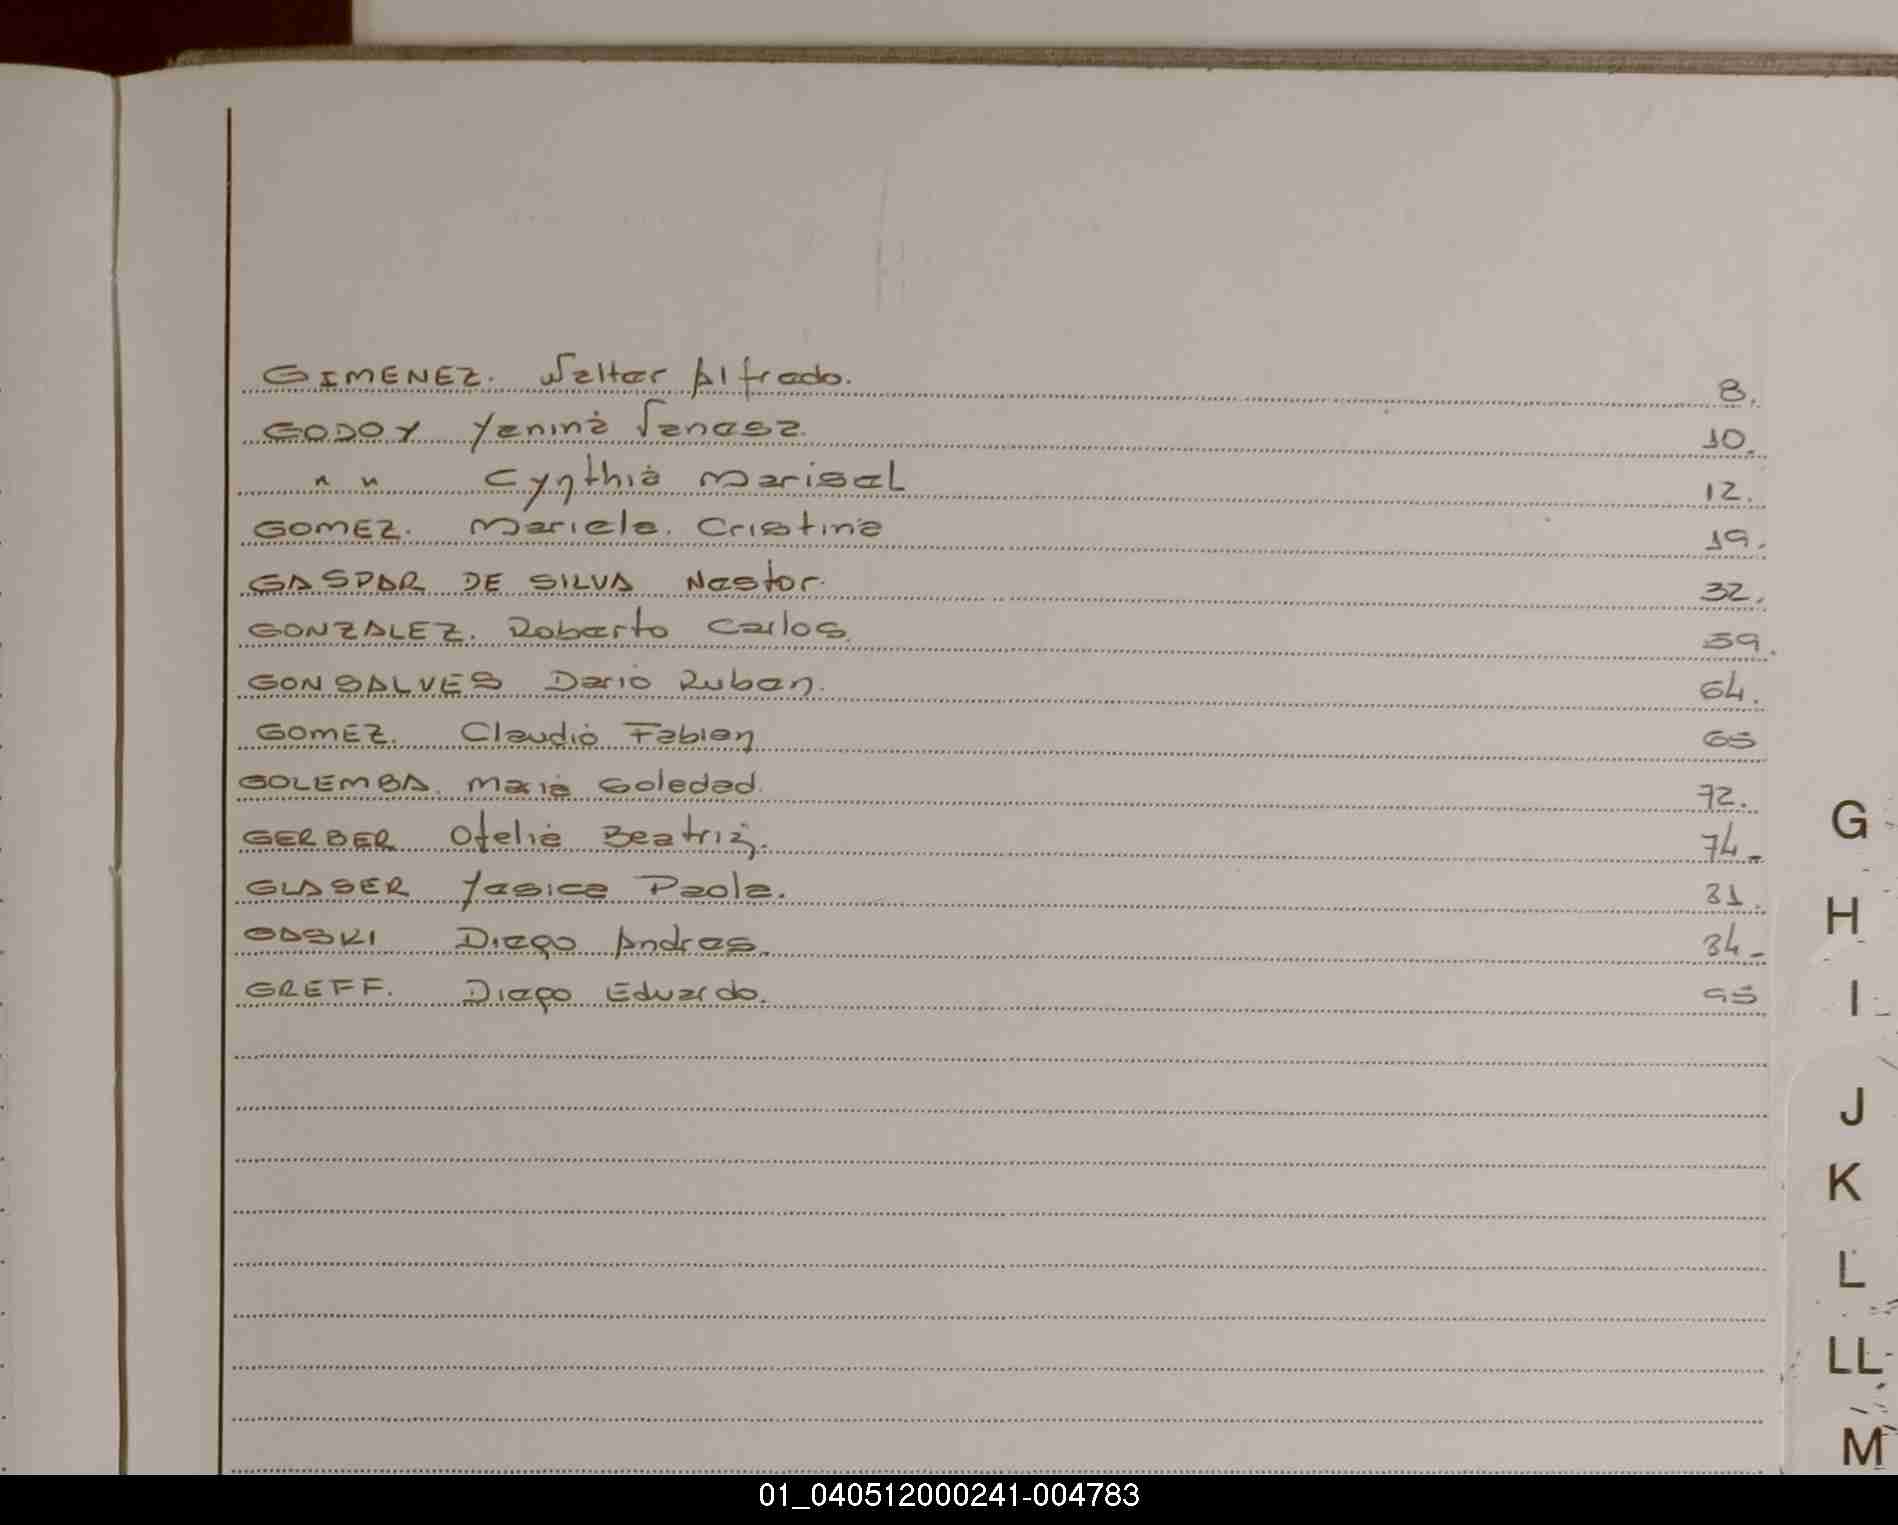 GIMENEZ. Walter Alfredo. 8.
GODOY Yanina Vanesa. 10.
" " Cynthia Marisel 12.
GOMEZ. Mariela. Cristina 19.
GASPAR DE SILVA Nestor. 32.
GONZALEZ. Roberto Carlos. 59.
GONSALVES Dario Ruben. 64.
GOMEZ. Claudio Fabian 65
GOLEMBA. Maria Soledad. 72.
GERBER Ofelia Beatriz. 74-
GLASER Yesica Paola. 81.
Diego Andres. 84-
GREFF. Diego Eduardo. 95
G
H
I
J
K
L
LL
M
01_040512000241-004783